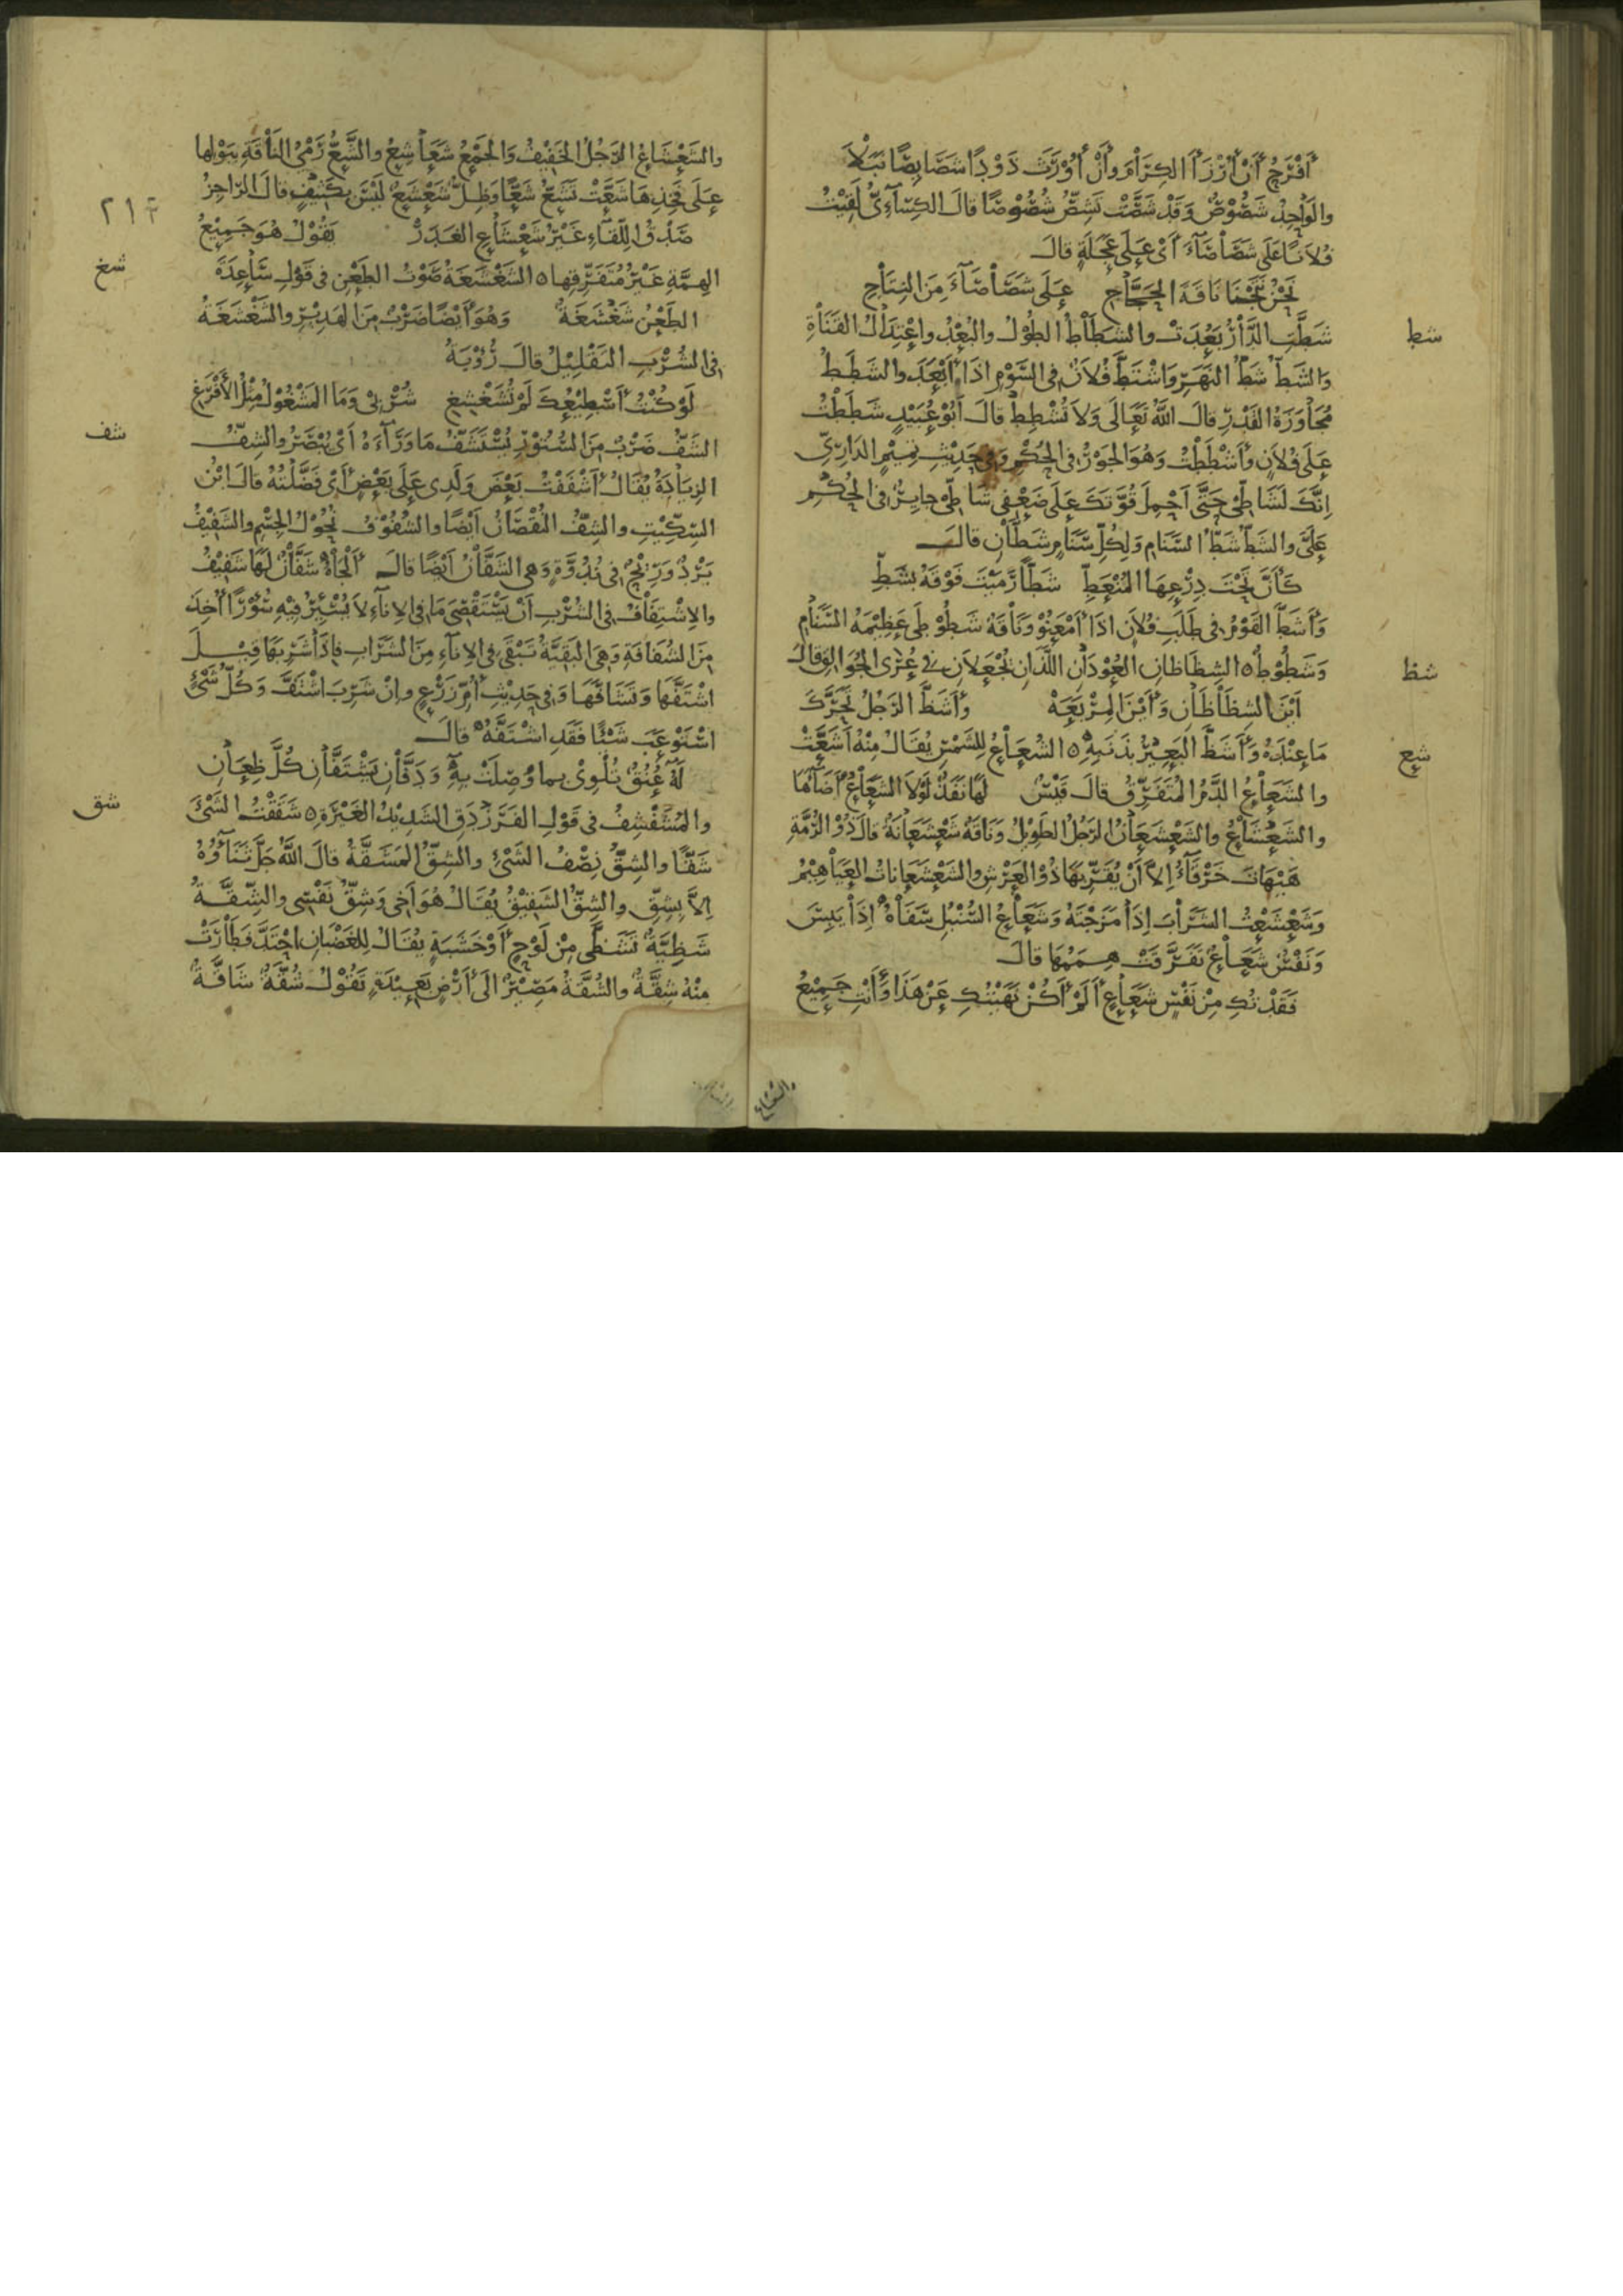 أَفْرَحُ أَنْ أُرْزَأَ الكِرَامَ وأَنْ أُورَثَ ذَوْدًا شَصَائِصًا نَبَلَا
والوَاحِدُ شَصُوصٌ وَقَدْ شَصَّتْ تَشِصُّ شُصُوصًا قالَ الكِسَآءِيُّ لَقِيْتُ
فُلَانًا عَلَى شَصَاصَآءَ أَىْ عَلَى عَجَلَةٍ قالَ
نَحْنُ نَتَجْنَا نَاقَةَ الحَجَّاجِ عَلَى شَصَاصَآءَ مِنَ النِتَاجِ
شط
شَطَّتِ الدَّارُ بَعُدَتْ والشَطَاطُ الطُوْلُ والبُعْدُ واعْتِدَالُ القَنَاةِ
وَالشَطُّ شَطُّ النَهَرِ وَاشْتَطَّ فُلَانٌ فِى السَّوْمِ اذَا أَبْعَدَ والشَطَطُ
مُجَاوَزَةُ القَدْرِ قالَ اللهُ تَعَالَى وَلَا تُشْطِطْ قالَ أَبُوْ عُبَيْدٍ شَطَطْتُ
عَلَى فُلَانٍ وأَشْطَطْتُ وَهُوَ الجَوْرُ فِى الحُكْمِ وَفِى حَدِيْثِ تَمِيْمٍ الدَارِىِّ
اِنَّكَ لَشَاطِّىْ حَتَّى أَحْمِلَ قُوَّتَكَ عَلَى ضَعْفِى شَاطِّىْ جايِرٌ فى الحُكْمِ
عَلَىَّ والشَطُّ شَطُّ السَّنَامِ وَلِكُلِّ سَنَامٍ شَطَّانِ قالَ
كَأَنَّ تَحْتَ دِرْعِهَا المُنْعَطِّ شَطًّا رَمَيْتَ فَوْقَهُ بشَطِّ
وَأَشَطَّ القَوْمُ فى طَلَبِ فُلَانٍ اذَا أَمْعَنُوْ وَنَاقَةٌ شَطُوْطَى عَظِيْمَةُ السَّنَامِ
شظ
وَشَطُوْطٌ ه الشِظَاظانِ العُوْدَانِ اللَّذَانِ يُجْعَلَانِ فى عُرْى الجُوَالِقِ قالَ
أَيْنَ الشِظَاظَانِ وَأَيْنَ المِرْبَعَهْ وأَشَظَّ الرَجُلُ تَحَرَّكَ
شع
مَا عِنْدَهُ وأَشَظَّ البَعِيْرُ بذَنَبِهِ ه الشُعَاعُ لِلشَمْسِ يُقَالُ مِنْهُ أَشَعَّتْ
والشَعَاعُ الدَّمُ المُتَفَرِّقُ قالَ قَيْسٌ لَهَا نَفَذٌ لَوْلَا الشَعَاعُ أَضَآءَهَا
والشَعْشَاعُ والشَعْشَعَانُ الرَجُلُ الطَوِيْلُ وَنَاقَةٌ شَعْشَعَانَةٌ قالَ ذُوْ الرُمَّةِ
هَيْهَاتَ خَرْقَآءُ اِلَّا أَنْ يُقَرِّبَهَا ذُوْ العَرْشِ والشَعْشَعَاناتُ العَيَاهِيْمُ
وَشَعْشَعْتُ الشَرَابَ اِذَا مَزَجْتَهُ وَشَعَاعُ السُنْبُلِ سَفَاهُ اِذَا يَبِسَ
وَنَفْسٌ شَعَاعٌ تَفَرَّقَتْ هِمَمُهَا قالَ
فَقَدْتُكِ مِنْ نَفْسٍ شَعَاعٍ أَلَمْ أَكُنْ نَهَيْتُكِ عَنْ هَذَا وأَنْتِ جَمِيْعُ
والشعشاع
٢١٢
والشَعْشَاعُ الرَجُلُ الخَفِيْفُ وَالجَمْعُ شَعَاشِعُ والشَّعُّ رَمْىُ النَاقَةِ بِبَوْلِهَا
عَلَى فَخِذِهَا شَعَّتْ تَشُعُّ شَعًّا وَظِلٌّ شَعْشَعٌ لَيْسَ بِكَثِيْفٍ قالَ الرّاجِزُ
صَدْقُ اللِّقَاءِ غَيْرُ شَعْشَاعِ الغَدَرْ يَقُوْلُ هُوَ جَمِيْعُ
شغ
الهِمَّةِ غَيْرُ مُتَفَرِّقِهَا ه الشَغْشَغَةُ صَوْتُ الطَعْنِ فى قَوْلِ سَاعِدَةَ
الطَعْنُ شَغْشَغَةٌ وَهُوَ أَيْضًا ضَرْبٌ مِنَ الهَدِيْرِ والشَغْشَغَةُ
فِى الشُرْبِ التَقْلِيْلُ قالَ رُؤْبَةُ
لَوْ كُنْتُ أَسْطِيْعُكَ لَمْ تُشَغْشِغِ شُرْبِىْ وَمَا المَشْغُوْلُ مِثْلُ الأَفْرَغِ
شف
الشَفُّ ضَرْبٌ مِنَ السُتُوْرِ يُسْتَشَفُّ مَا وَرَآءَهُ أَىْ يُبْصَرُ والشِفُّ
الزِيَادَةُ يُقَالُ أَشْفَفْتُ بَعْضَ وَلَدِى عَلَى بَعْضٍ أَىْ فَضَّلْتُهُ قالَ ابْنُ
السِكِّيْتِ والشِفُّ النُقْصَانُ أَيْضًا والشُفُوْفُ نُحُوْلُ الجِسْمِ والشَفِيْفُ
بَرْدُ وَرِيْحٌ فِى نُدُوَّةٍ وَهِىَ الشَفَّانُ أَيْضًا قالَ أَلْجَاهُ شَفَّانٌ لَهَا شَفِيْفُ
والاِشْتِفَافُ فى الشُرْبِ أَنْ يَسْتَقْصِىَ مَا فِى الاِنآءِ لَا يُسْئِرُ فِيْهِ سُؤْرًا أُخِذَ
مِنَ الشُفَافَةِ وَهِىَ البَقِيَّةُ تَبْقَى فِى الاِنآءِ مِنَ الشَرَابِ فاِذَا شَرِبَهَا قِيْلَ
اشْتَفَّهَا وَتَشَافَّهَا وَفِى حَدِيْثِ أُمِّ زَرْعٍ وَاِنْ شَرِبَ اشْتَفَّ وَكُلُّ شَىْءٍ
اسْتَوْعَبَ شَيْئًا فَقَدِ اشْتَفَّهُ قالَ
لَهُ عُنُقٌ تُلْوِىْ بِما وُصِلَتْ بِهِ وَدَفَّانِ يَشْتَفَّانِ كُلَّ ظِعَانِ
شق
والمُشَفْشِفُ فى قَوْلِ الفَرَزْدَقِ الشَدِيْدُ الغَيْرَةِ ه شَقَقْتُ الشَىْءَ
شَقًّا والشِقُّ نِصْفُ الشَىْءِ والشِقُّ المَشَقَّةُ قالَ اللهُ جَلَّ ثَنَآؤُهُ
اِلَّا بِشِقِّ والشِقُّ الشَقِيْقُ يُقَالُ هُوَ أَخِى وَشِقُّ نَفْسِى والشِقَّةُ
شَظِيَّةٌ تَشَظَّى مِنْ لَوْحٍ أَوْ خَشَبَةٍ يُقَالُ لِلغَضْبَانِ احْتَدَّ فَطَارَتْ
مِنْهُ شِقَّةٌ والشُقَّةُ مَصِيْرٌ الَى أَرْضٍ بَعِيْدَةٍ تَقُوْلُ شُقَّةٌ شَاقَّةٌ